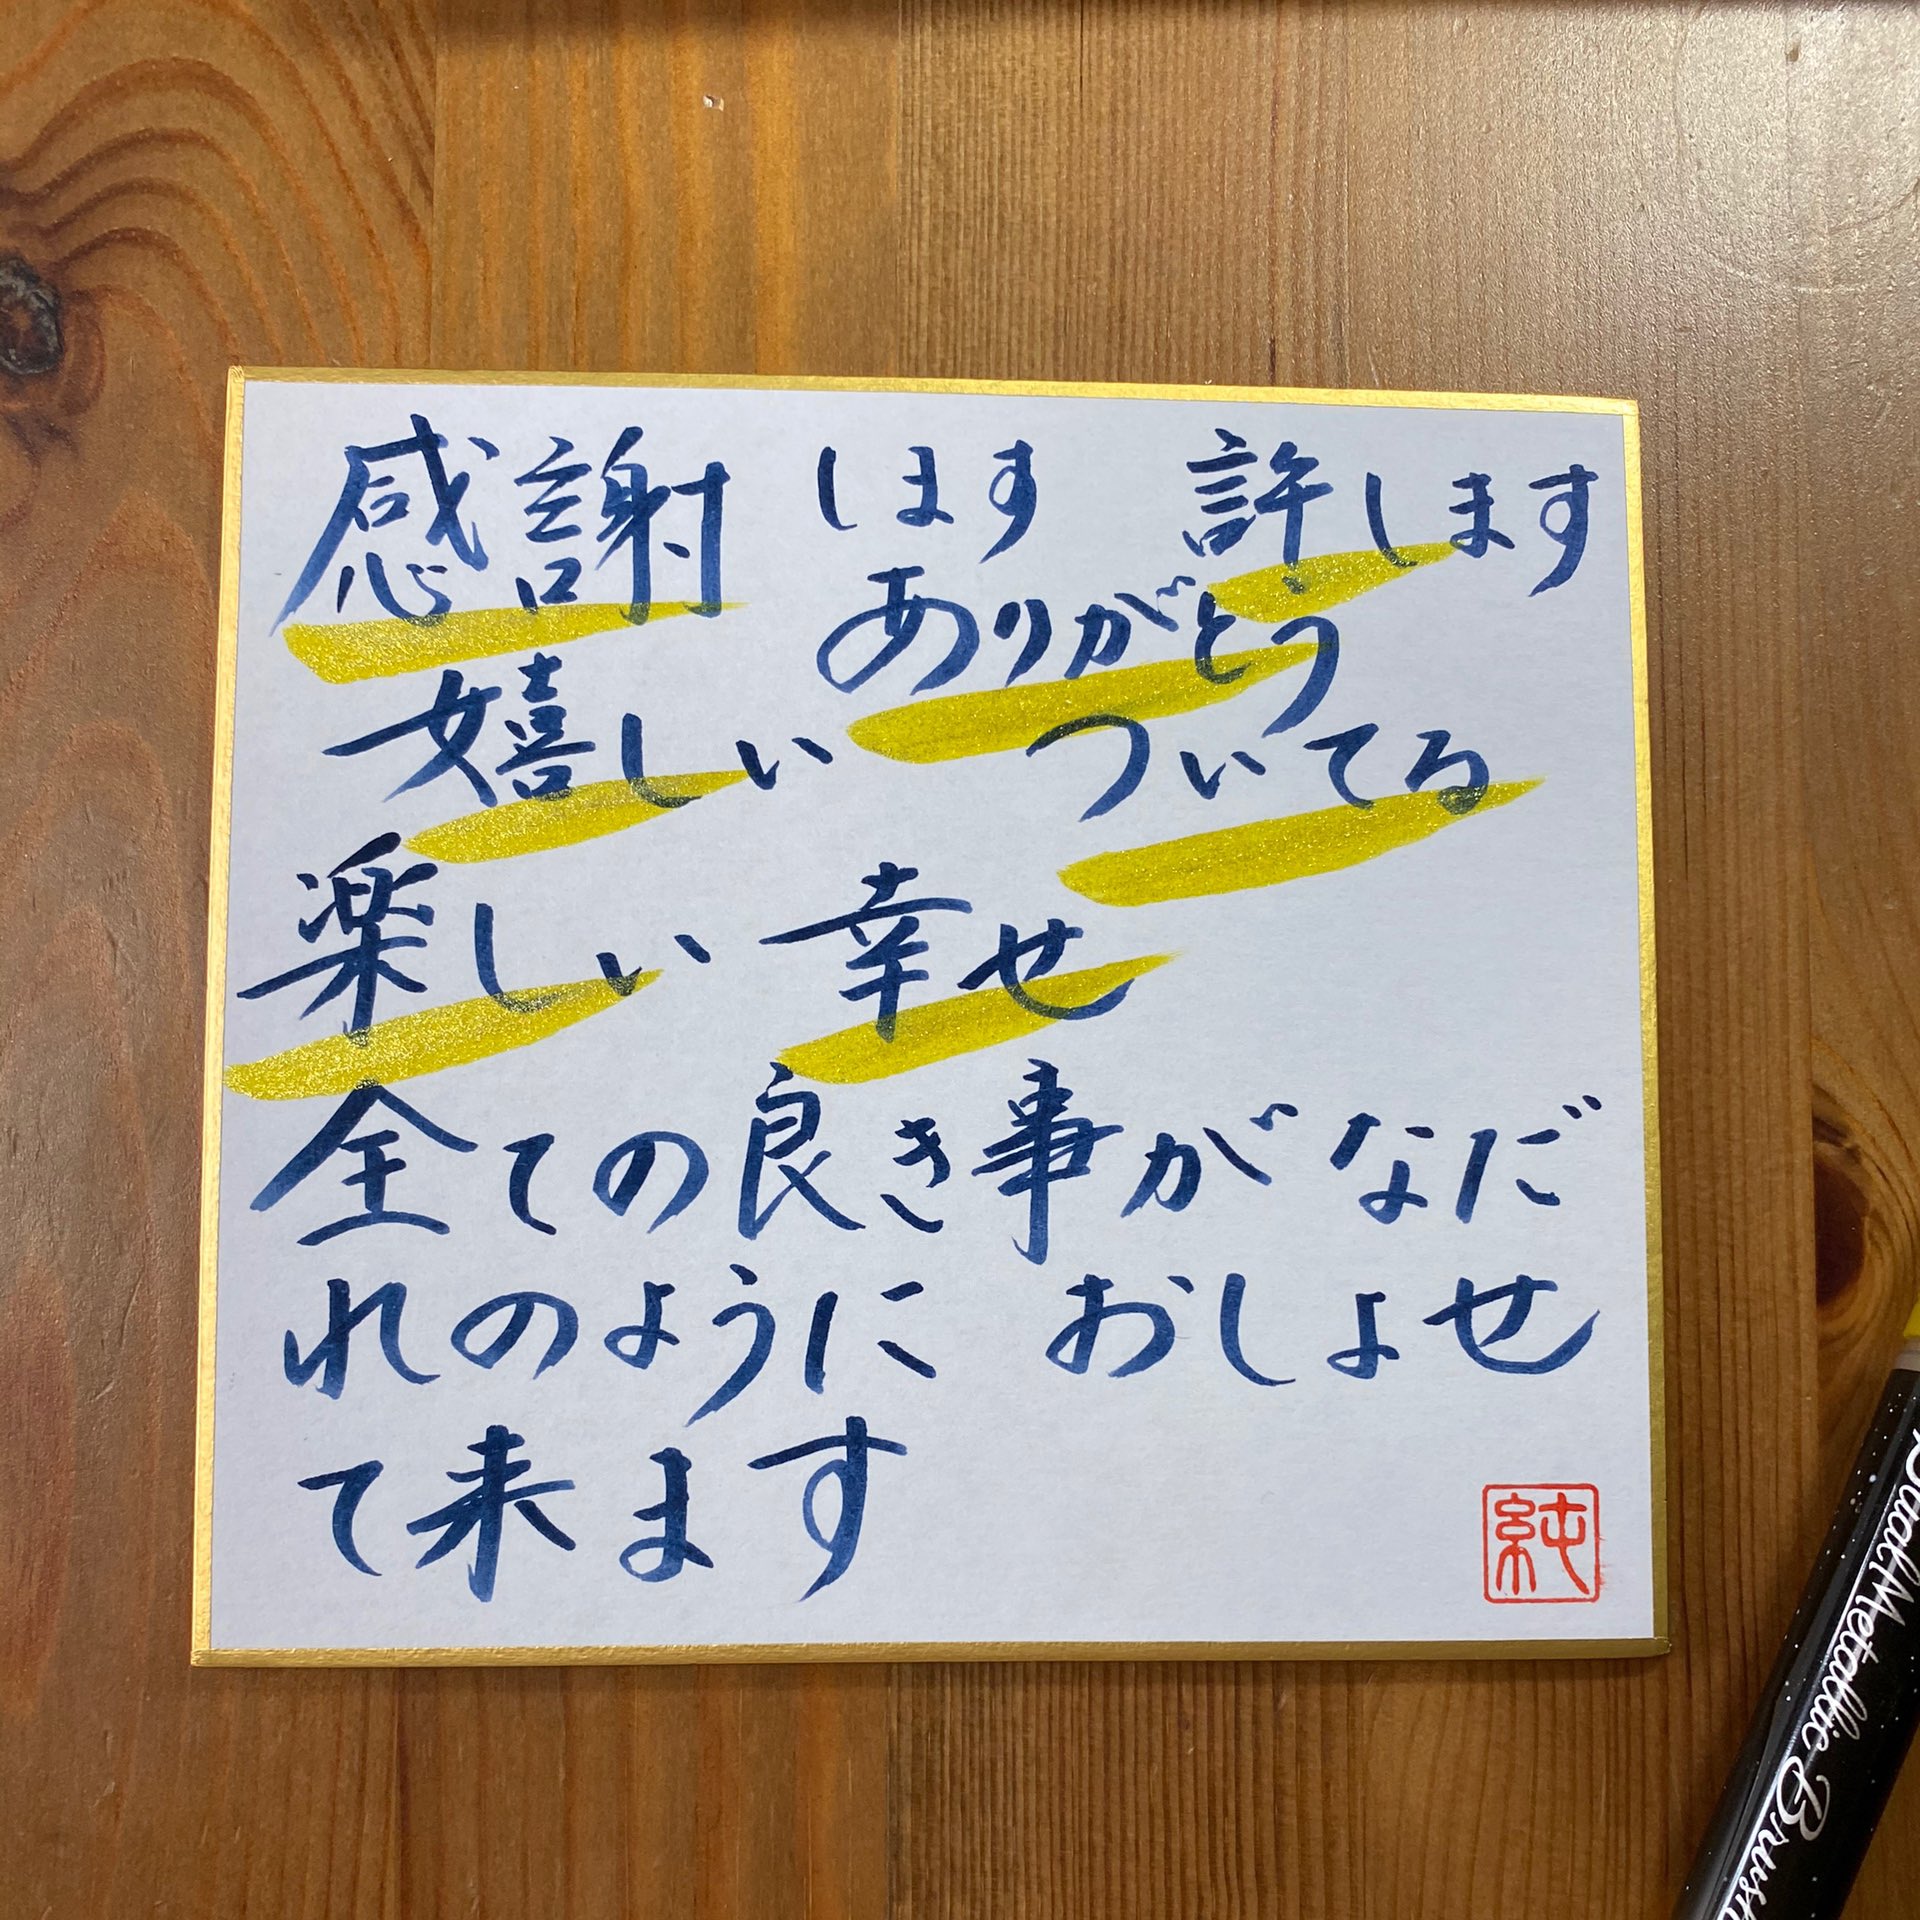 感謝 します 許します
ありがとう
嬉しい ついてる
楽しい 幸せ
全ての良き事がなだ
れのように おしよせ
て来ます
純
Metallic Brush